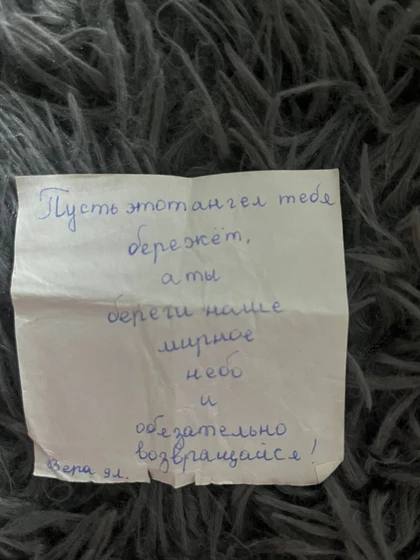 Пусть этот ангел тебя
бережёт,
а ты
береги наше
мирное
небо
и
обязательно
возвращайся!
Вера 9л.